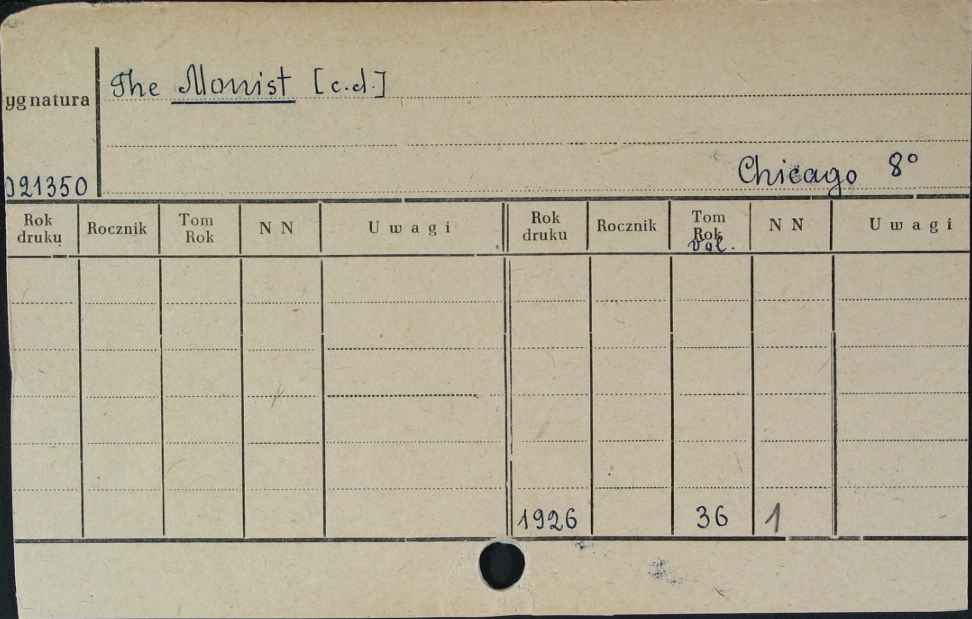 The Monist [c.d.]
ygnatura
Chicago 8°
021350
Rok druku Rocznik Tom Rok N N Uwagi Rok druku Rocznik Tom Rok vol. N N Uwagi
1926 36 1